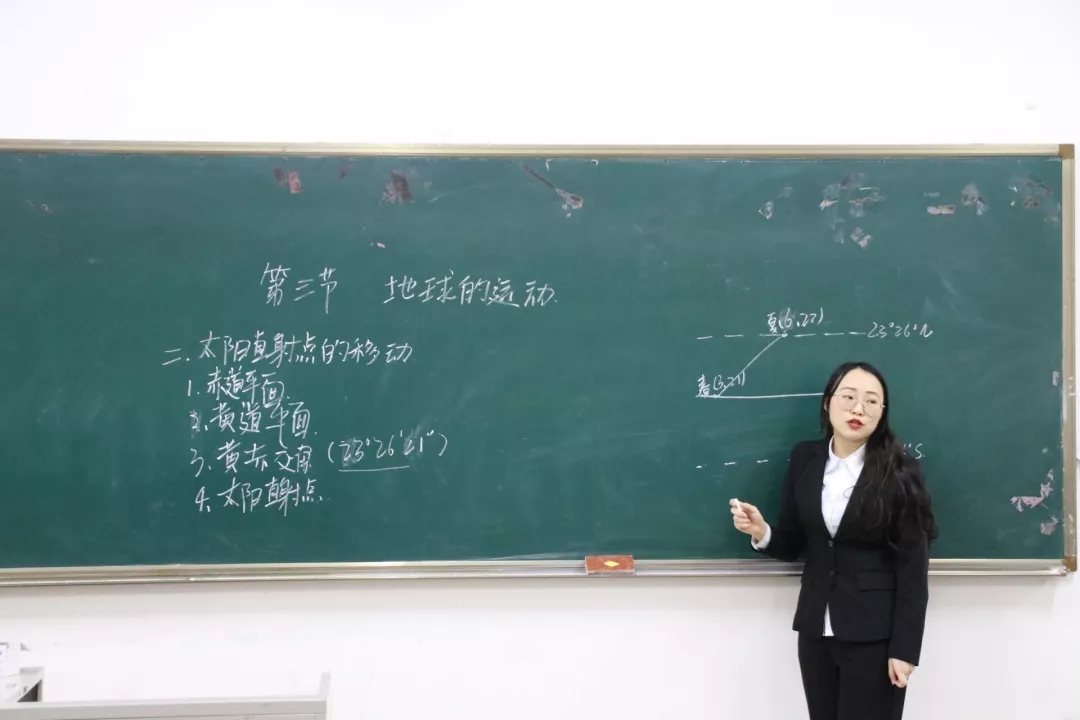 第三节 地球的运动
二、太阳直射点的移动
1. 赤道平面
2. 黄道平面
3. 黄赤交角 (23°26′21″)
4. 太阳直射点
夏(6.22)
23°26′N
春(3.21)
″S